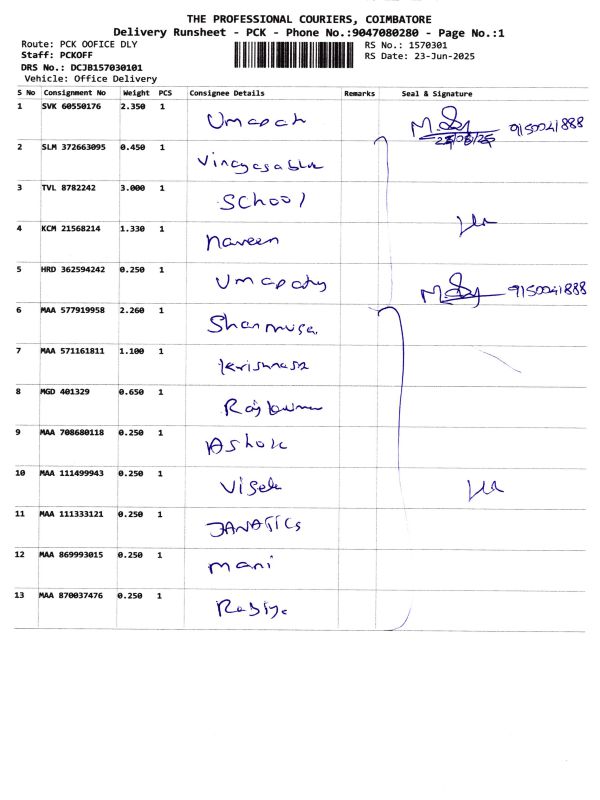 THE PROFESSIONAL COURIERS, COIMBATORE
Delivery Runsheet - PCK - Phone No.:9047080280 - Page No.:1
Route: PCK OOFICE DLY RS No.: 1570301
Staff: PCKOFF RS Date: 23-Jun-2025
DRS No.: DCJB157030101
Vehicle: Office Delivery
S No Consignment No Weight PCS Consignee Details Remarks Seal & Signature
1 SVK 60550176 2.350 1 Umapath 9150041888
2 SLM 372663095 0.450 1
3 TVL 8782242 3.000 1 School
4 KCM 21568214 1.330 1 Naveen
5 HRD 362594242 0.250 1 Umapathy 9150041888
6 MAA 577919958 2.260 1
7 MAA 571161811 1.100 1
8 MGD 401329 0.650 1
9 MAA 708680118 0.250 1 Ashok
10 MAA 111499943 0.250 1
11 MAA 111333121 0.250 1 JANATICS
12 MAA 869993015 0.250 1 mani
13 MAA 870037476 0.250 1